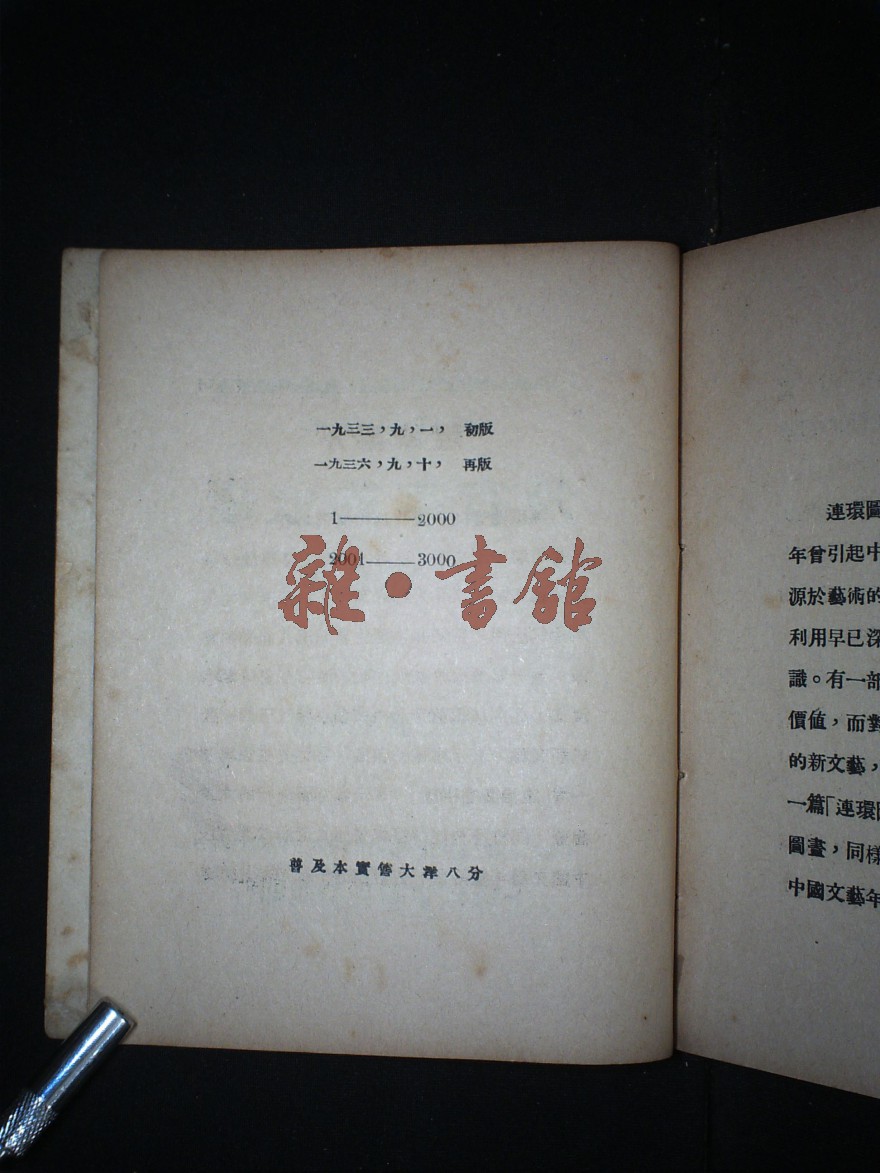 一九三三，九，一， 初版
一九三六，九，十， 再版
1———2000
2001——3000
雜·書館
普及本實售大洋八分
連環圖
年曾引起中
源於藝術的
利用早已深
識。有一部
價值，而對
的新文藝，
一篇「連環圖
圖畫，同樣
中國文藝年